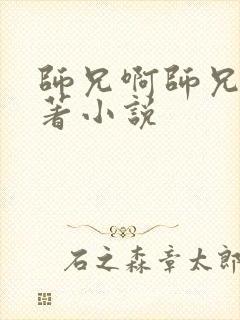 師兄啊師兄
著小説
石之森章太郎